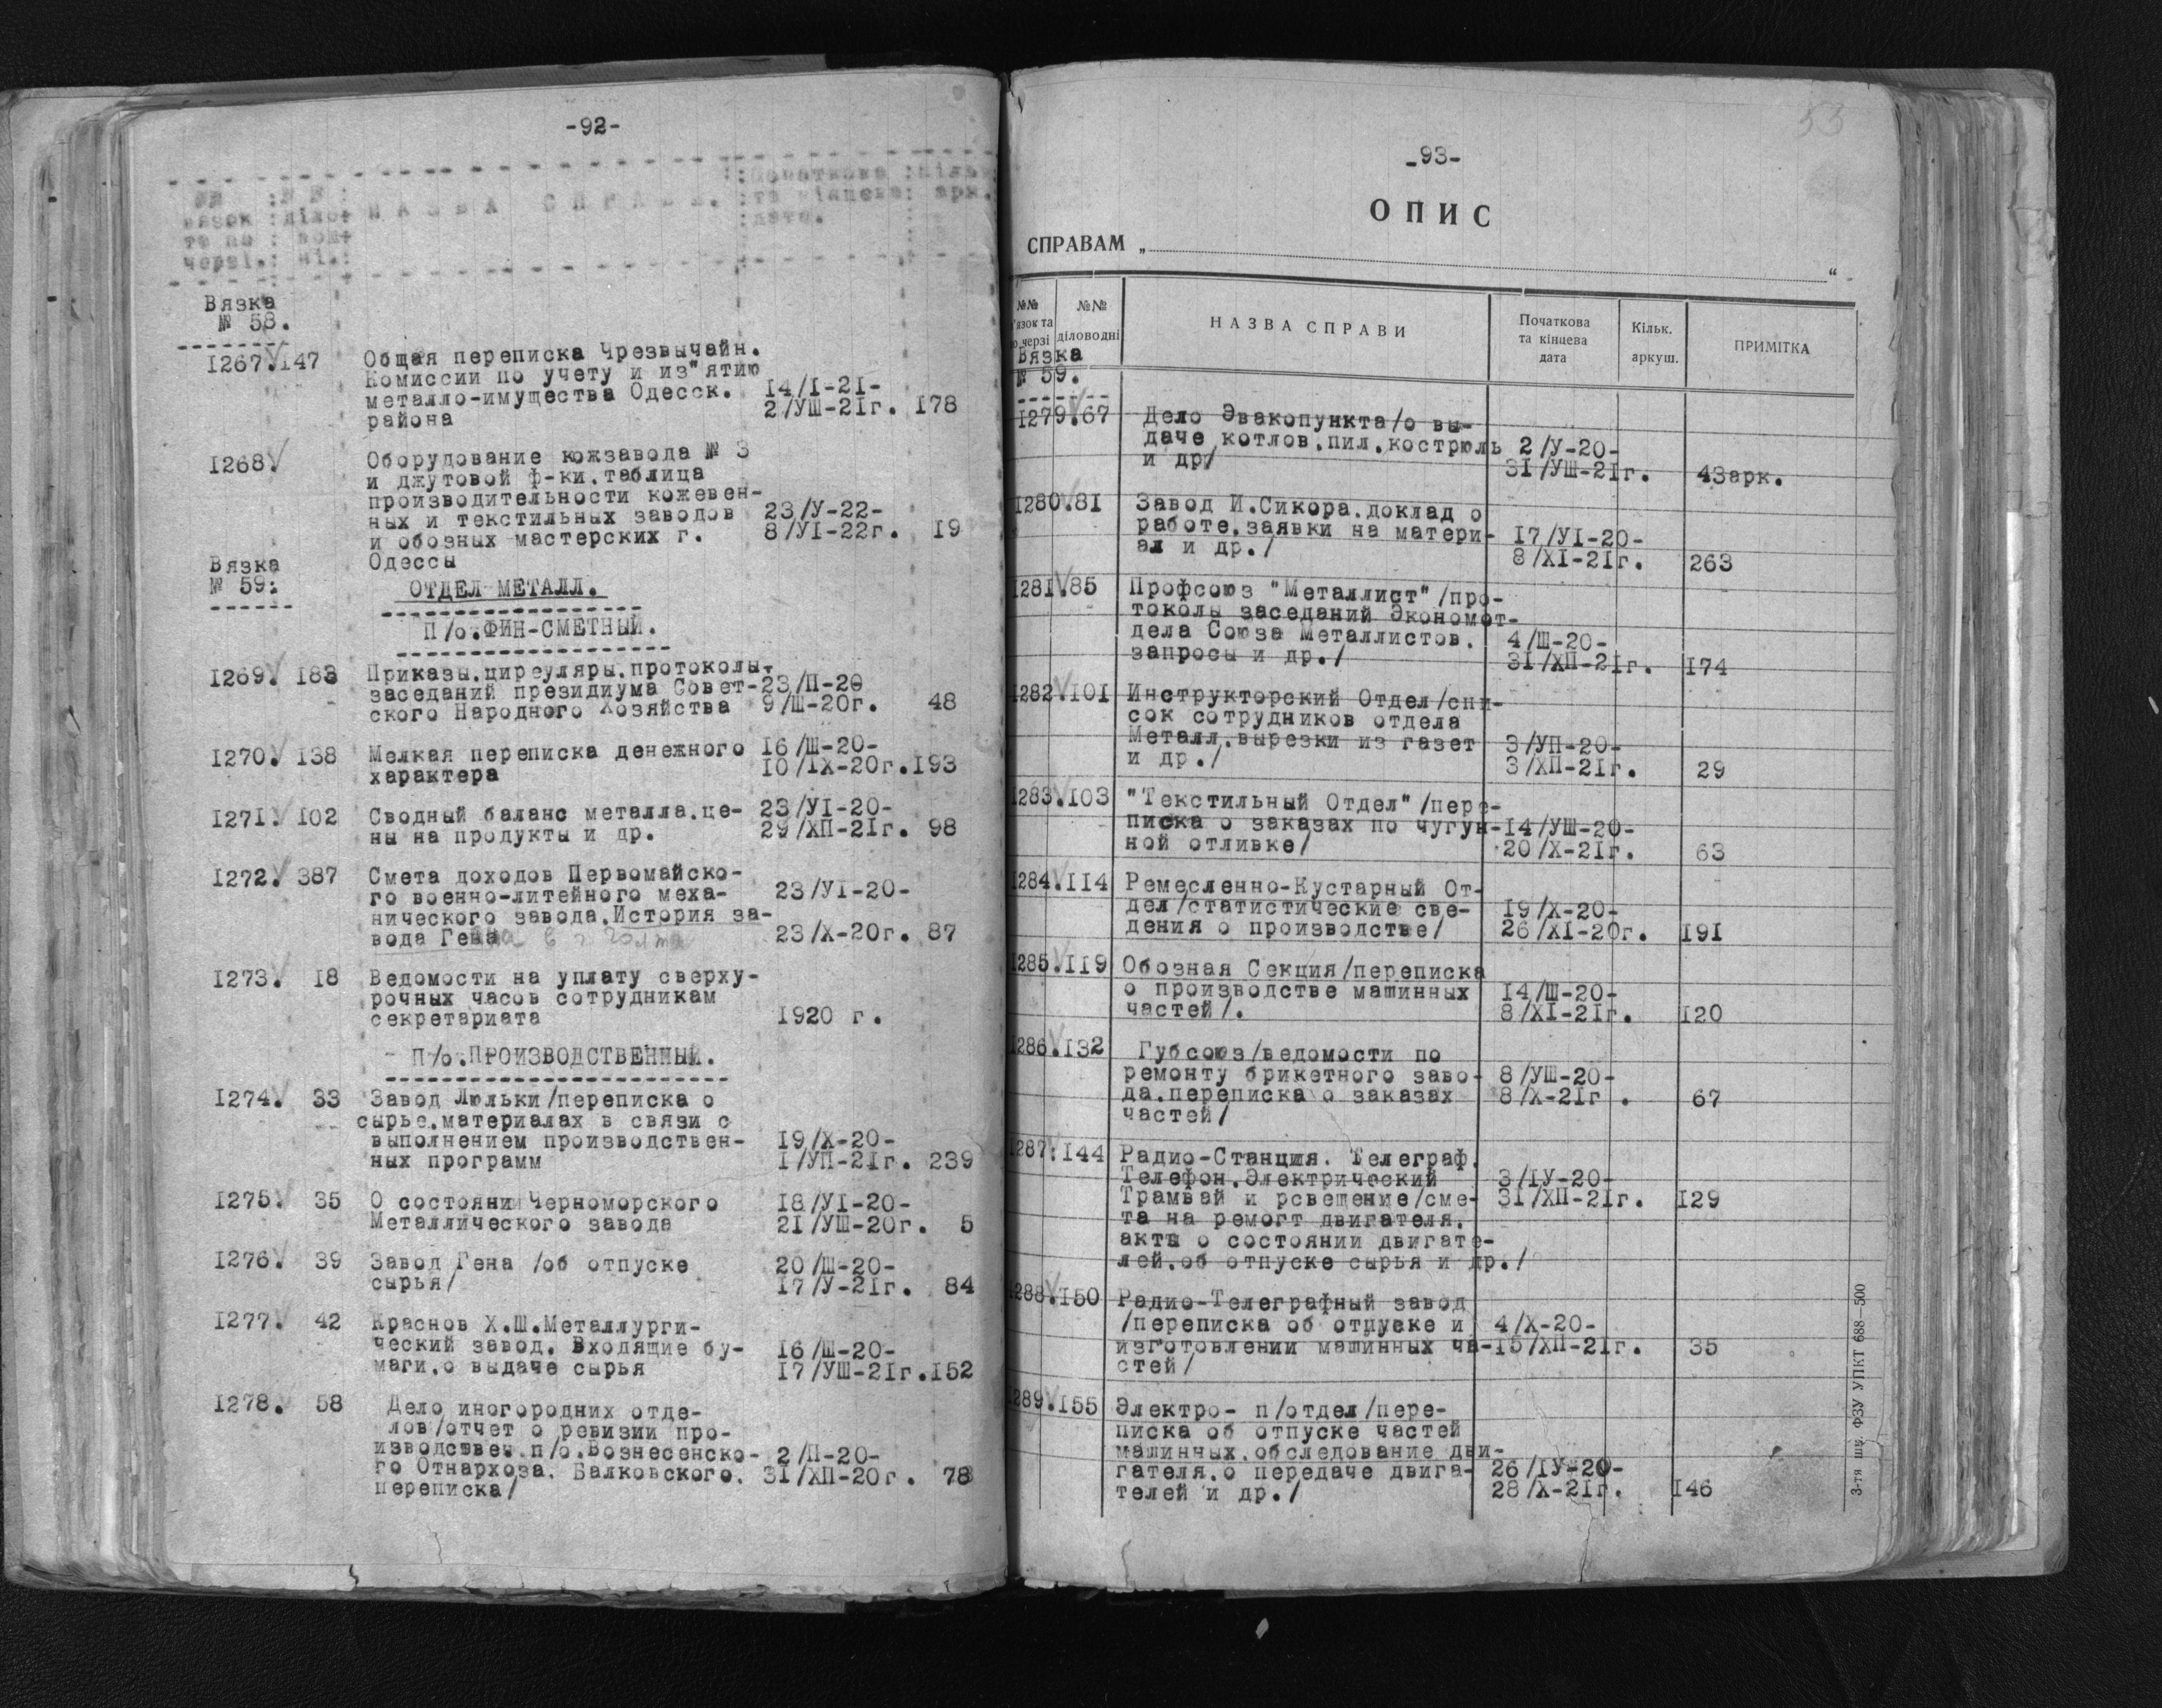 -92-
№№ :№ №:
вязок :діло- НАЗВА СПРАВИ. :Початкова :кільк
та по : вод- :та кінцева: арк.
черзі.: ні.: :дата.
Вязка
№ 58.
1267. 147 Общая переписка Чрезвычайн.
Комиссии по учету и из"ятию
металло-имущества Одесск. 14/I-21-
района 2/УШ-21г. 178
1268. Оборудование кожзавода № 3
и джутовой ф-ки.таблица
производительности кожевен-
ных и текстильных заводов 23/У-22-
и обозных мастерских г. 8/УI-22г. 19
Одессы
Вязка
№ 59:
ОТДЕЛ МЕТАЛЛ.
П/о.ФИН-СМЕТНЫЙ.
1269. 183 Приказы.циркуляры.протоколы.
заседаний президиума Совет-23/П-20
ского Народного Хозяйства 9/Ш-20г. 48
1270. 138 Мелкая переписка денежного 16/Ш-20-
характера 10/IX-20г.193
1271. 102 Сводный баланс металла.це- 23/УI-20-
ны на продукты и др. 29/ХП-21г. 98
1272. 387 Смета доходов Первомайско-
го военно-литейного меха- 23/УI-20-
нического завода.История за-
вода Гена в г. 23/Х-20г. 87
1273. 18 Ведомости на уплату сверху-
рочных часов сотрудникам
секретариата 1920 г.
П/о.ПРОИЗВОДСТВЕННЫЙ.
1274. 33 Завод Люльки/переписка о
сырье.материалах в связи с
выполнением производствен- 19/Х-20-
ных программ I/УП-21г. 239
1275. 35 О состоянии Черноморского 18/УI-20-
Металлического завода 21/УШ-20г. 5
1276. 39 Завод Гена /об отпуске 20/Ш-20-
сырья/ 17/У-21г. 84
1277. 42 Краснов Х.Ш.Металлурги-
ческий завод. Входящие бу- 16/Ш-20-
маги.о выдаче сырья 17/УШ-21г.152
1278. 58 Дело иногородних отде-
лов/отчет о ревизии про-
изводствен.п/о.Вознесенско- 2/П-20-
го Отнархоза. Балковского. 31/ХП-20г. 78
переписка/
53
-93-
ОПИС
СПРАВАМ „ “
№№ №№
'язок та
о черзі діловодні НАЗВА СПРАВИ Початкова та кінцева дата Кільк. аркуш. ПРИМІТКА
Вязка
№ 59.
1279.67 Дело Эвакопункта/о вы-
даче котлов.пил.кострюль 2/У-20-
и др/ 31/УШ-21г. 43арк.
1280.81 Завод И.Сикора.доклад о
работе.заявки на матери- 17/УI-20-
ал и др./ 8/XI-21г. 263
1281.85 Профсоюз "Металлист"/про-
токолы заседаний Экономот-
дела Союза Металлистов. 4/Ш-20-
запросы и др./ 31/ХП-21г. 174
1282.101 Инструкторский Отдел/спи-
сок сотрудников отдела
Металл.вырезки из газет 3/УП-20-
и др./ 3/ХП-21г. 29
1283.103 "Текстильный Отдел"/пере-
писка о заказах по чугун-14/УШ-20-
ной отливке/ 20/Х-21г. 63
1284.114 Ремесленно-Кустарный От-
дел/статистические све- 19/Х-20-
дения о производстве/ 26/XI-20г. 191
1285.119 Обозная Секция/переписка
о производстве машинных 14/Ш-20-
частей/. 8/XI-21г. 120
1286.132 Губсоюз/ведомости по
ремонту брикетного заво- 8/УШ-20-
да.переписка о заказах 8/Х-21г . 67
частей/
1287.144 Радио-Станция. Телеграф.
Телефон.Электрический 3/IУ-20-
Трамвай и рсвещение/сме- 31/ХП-21г. 129
та на ремонт двигателя.
акты о состоянии двигате-
лей.об отпуске сырья и др./
1288.150 Радио-Телеграфный завод
/переписка об отпуске и 4/Х-20-
изготовлении машинных ча-15/ХП-21г. 35
стей/
1289.155 Электро- п/отдел/пере-
писка об отпуске частей
машинных.обследование дви-
гателя.о передаче двига- 26/IУ-20-
телей и др./ 28/Х-21г. 146
3-тя шк. ФЗУ УПКТ 688—500